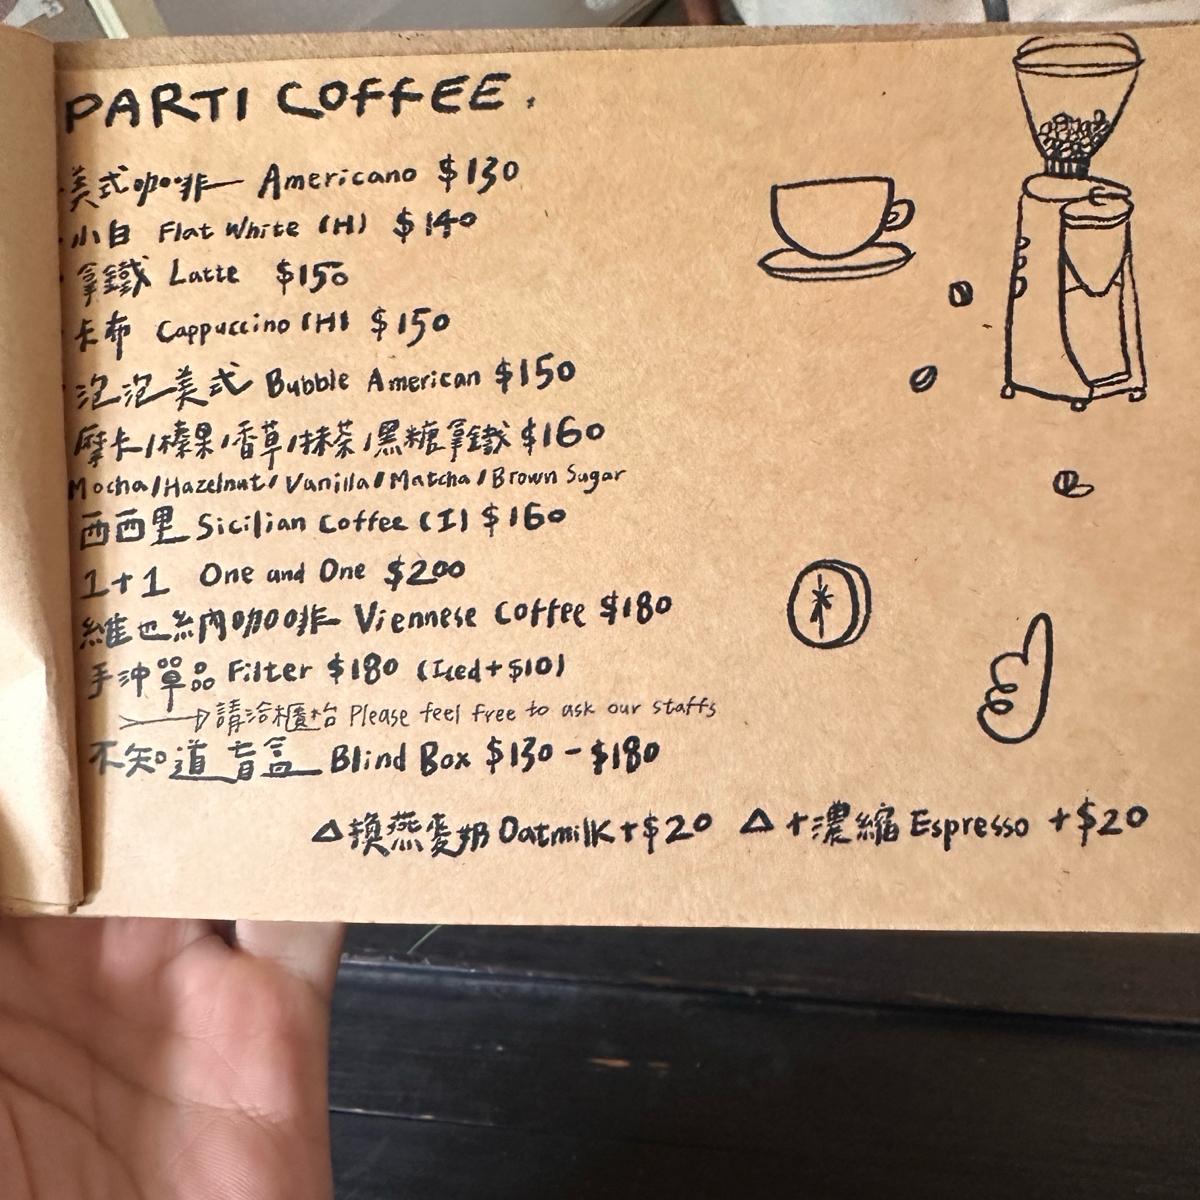 PARTI COFFEE.
美式咖啡 Americano $130
小白 Flat White (H) $140
拿鐵 Latte $150
卡布 Cappuccino (H) $150
泡泡美式 Bubble American $150
摩卡/榛果/香草/抹茶/黑糖拿鐵 $160
Mocha/Hazelnut/Vanilla/Matcha/Brown Sugar
西西里 Sicilian Coffee (I) $160
1+1 One and One $200
維也納咖啡 Viennese Coffee $180
手沖單品 Filter $180 (Iced+$10)
→請洽櫃枱 Please feel free to ask our staffs
不知道盲盒 Blind Box $130-$180
△換燕麥奶 Oatmilk+$20 △+濃縮 Espresso +$20